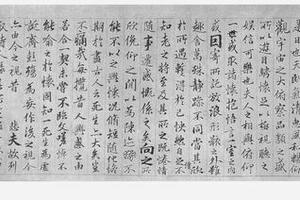 觀宇宙之大俯察品類之盛
所以遊目騁懷足以極視聽之
娛信可樂也夫人之相與俯仰
一世或取諸懷抱悟言一室之內
或因寄所託放浪形骸之外雖
趣舍萬殊靜躁不同當其欣
於所遇蹔得於己怏然自足不
知老之將至及其所之既惓情
隨事遷感慨係之矣向之所
欣俛仰之閒以為陳迹猶不
能不以之興懷況脩短隨化終
期於盡古人云死生亦大矣豈
不痛哉每攬昔人興感之由
若合一契未嘗不臨文嗟悼不
能喻之於懷固知一死生為虛
誕齊彭殤為妄作後之視今
亦由今之視昔 悲夫故列